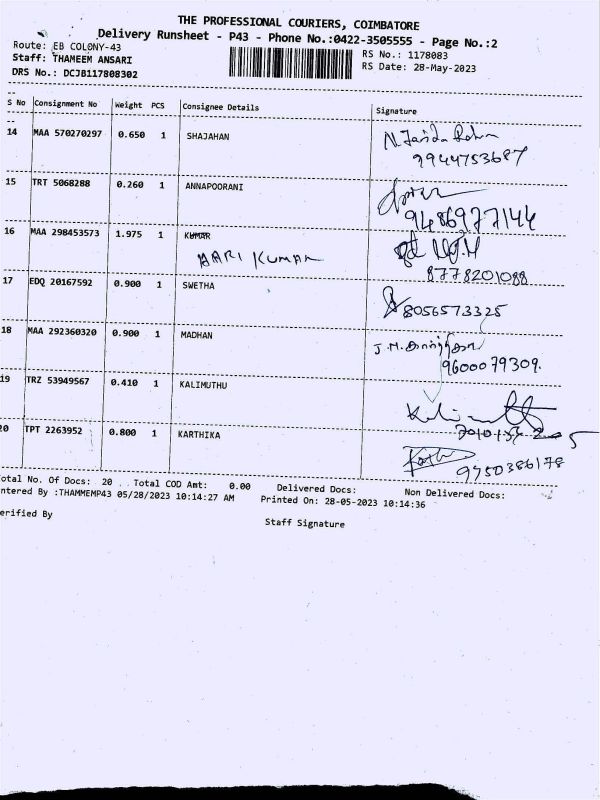 THE PROFESSIONAL COURIERS, COIMBATORE
Delivery Runsheet - P43 - Phone No.:0422-3505555 - Page No.:2
Route: EB COLONY-43
RS No.: 1178083
Staff: THAMEEM ANSARI
RS Date: 28-May-2023
DRS No.: DCJB117808302
S No Consignment No Weight PCS Consignee Details Signature
14 MAA 570270297 0.650 1 SHAJAHAN
9944753687
15 TRT 5068288 0.260 1 ANNAPOORANI
9486977144
16 MAA 298453573 1.975 1 KUMAR
HARI KUMAR
8778201088
17 EDQ 20167592 0.900 1 SWETHA
8056573325
18 MAA 292360320 0.900 1 MADHAN
J.M.
9600079309.
19 TRZ 53949567 0.410 1 KALIMUTHU
20 TPT 2263952 0.800 1 KARTHIKA
9750386178
otal No. Of Docs: 20 Total COD Amt: 0.00 Delivered Docs: Non Delivered Docs:
ntered By :THAMMEMP43 05/28/2023 10:14:27 AM Printed On: 28-05-2023 10:14:36
erified By
Staff Signature